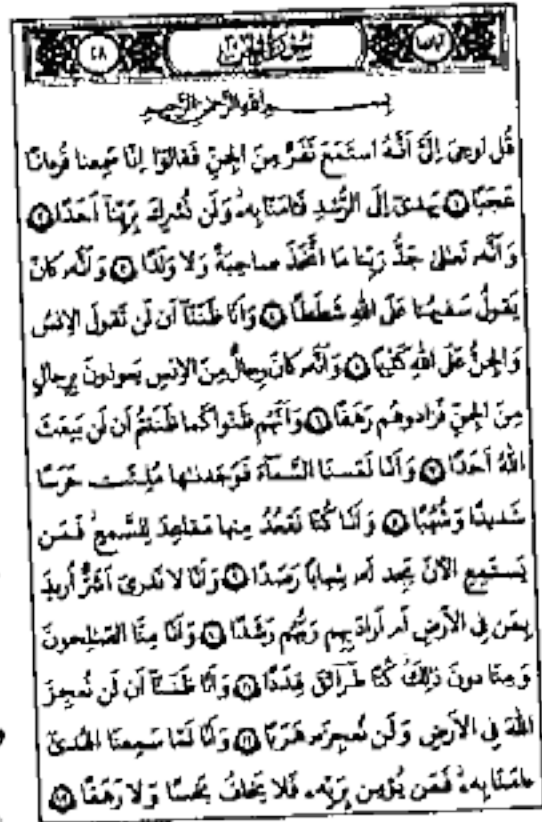 آیاتها ٢٨ سورة الجن
بسم الله الرحمن الرحيم
قُل اُوحِیَ اِلَیَّ اَنَّهُ استَمَعَ نَفَرٌ مِنَ الجِنِّ فَقالوٓا اِنّا سَمِعنا قُرءانًا
عَجَبًا ١ یَهدیٓ اِلَی الرُّشدِ فَـٔامَنّا بِهٖ وَلَن نُشرِكَ بِرَبِّنآ اَحَدًا ٢
وَ اَنَّهٗ تَعٰلیٰ جَدُّ رَبِّنا مَا اتَّخَذَ صاحِبَةً وَلا وَلَدًا ٣ وَ اَنَّهٗ كانَ
یَقولُ سَفیهُنا عَلَی اللّٰهِ شَطَطًا ٤ وَ اَنّا ظَنَنّآ اَن لَن تَقولَ الاِنسُ
وَ الجِنُّ عَلَی اللّٰهِ كَذِبًا ٥ وَ اَنَّهٗ كانَ رِجالٌ مِنَ الاِنسِ یَعوذونَ بِرِجالٍ
مِنَ الجِنِّ فَزادوهُم رَهَقًا ٦ وَ اَنَّهُم ظَنّوا كَما ظَنَنتُم اَن لَن یَبعَثَ
اللّٰهُ اَحَدًا ٧ وَ اَنّا لَمَسنَا السَّمآءَ فَوَجَدنٰها مُلِئَت حَرَسًا
شَدیدًا وَ شُهُبًا ٨ وَ اَنّا كُنّا نَقعُدُ مِنها مَقاعِدَ لِلسَّمعِ فَمَن
یَستَمِعِ الاٰنَ یَجِد لَهٗ شِهابًا رَصَدًا ٩ وَ اَنّا لا نَدریٓ اَشَرٌّ اُریدَ
بِمَن فِی الاَرضِ اَم اَرادَ بِهِم رَبُّهُم رَشَدًا ١٠ وَ اَنّا مِنَّا الصّٰلِحونَ
وَ مِنّا دونَ ذٰلِكَ كُنّا طَرآئِقَ قِدَدًا ١١ وَ اَنّا ظَنَنّآ اَن لَن نُعجِزَ
اللّٰهَ فِی الاَرضِ وَ لَن نُعجِزَهٗ هَرَبًا ١٢ وَ اَنّا لَمّا سَمِعنَا الهُدیٰٓ
ءامَنّا بِهٖ فَمَن یُؤمِن بِرَبِّهٖ فَلا یَخافُ بَخسًا وَ لا رَهَقًا ١٣